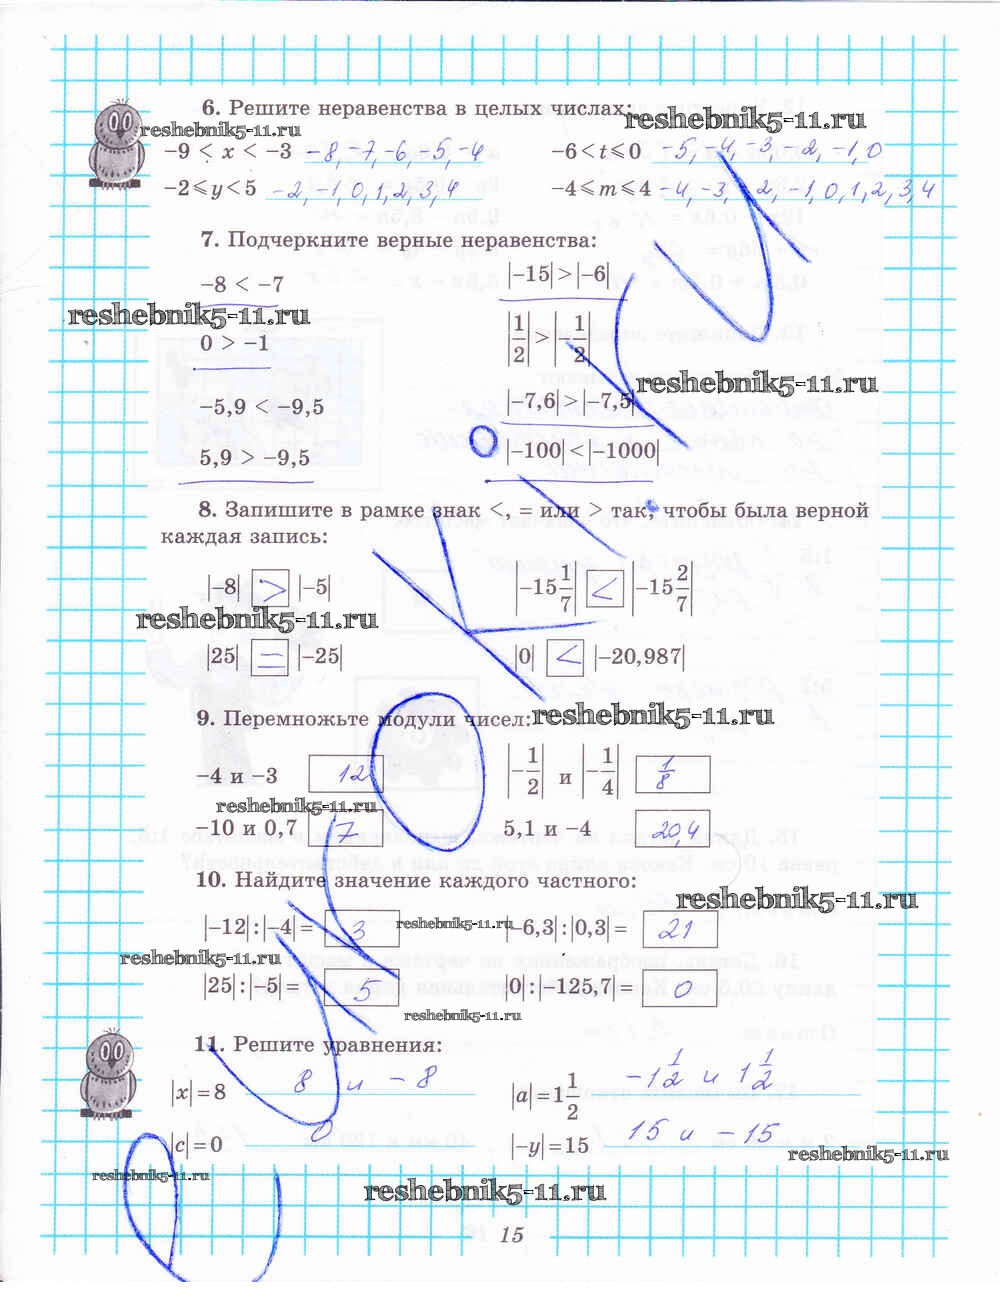 6. Решите неравенства в целых числах:
reshebnik5-11.ru
reshebnik5-11.ru
−9 < x < −3 −8,−7,−6,−5,−4
−6 < t ⩽ 0 −5,−4,−3,−2,−1,0
−2 ⩽ y < 5 −2,−1,0,1,2,3,4
−4 ⩽ m ⩽ 4 −4,−3,−2,−1,0,1,2,3,4
7. Подчеркните верные неравенства:
−8 < −7
|−15| > |−6|
reshebnik5-11.ru
0 > −1
|1/2| > |−1/2|
reshebnik5-11.ru
−5,9 < −9,5
|−7,6| > |−7,5|
5,9 > −9,5
|−100| < |−1000|
8. Запишите в рамке знак <, = или > так, чтобы была верной
каждая запись:
|−8| > |−5|
|−15 1/7| < |−15 2/7|
reshebnik5-11.ru
|25| = |−25|
|0| < |−20,987|
9. Перемножьте модули чисел:
reshebnik5-11.ru
−4 и −3 12
|−1/2| и |−1/4| 1/8
reshebnik5-11.ru
−10 и 0,7 7
5,1 и −4 20,4
10. Найдите значение каждого частного:
reshebnik5-11.ru
|−12| : |−4| = 3
reshebnik5-11.ru
|−6,3| : |0,3| = 21
reshebnik5-11.ru
|25| : |−5| = 5
|0| : |−125,7| = 0
reshebnik5-11.ru
11. Решите уравнения:
|x| = 8 8 и −8
|a| = 1 1/2 −1 1/2 и 1 1/2
|c| = 0 0
|−y| = 15 15 и −15
reshebnik5-11.ru
reshebnik5-11.ru
reshebnik5-11.ru
15